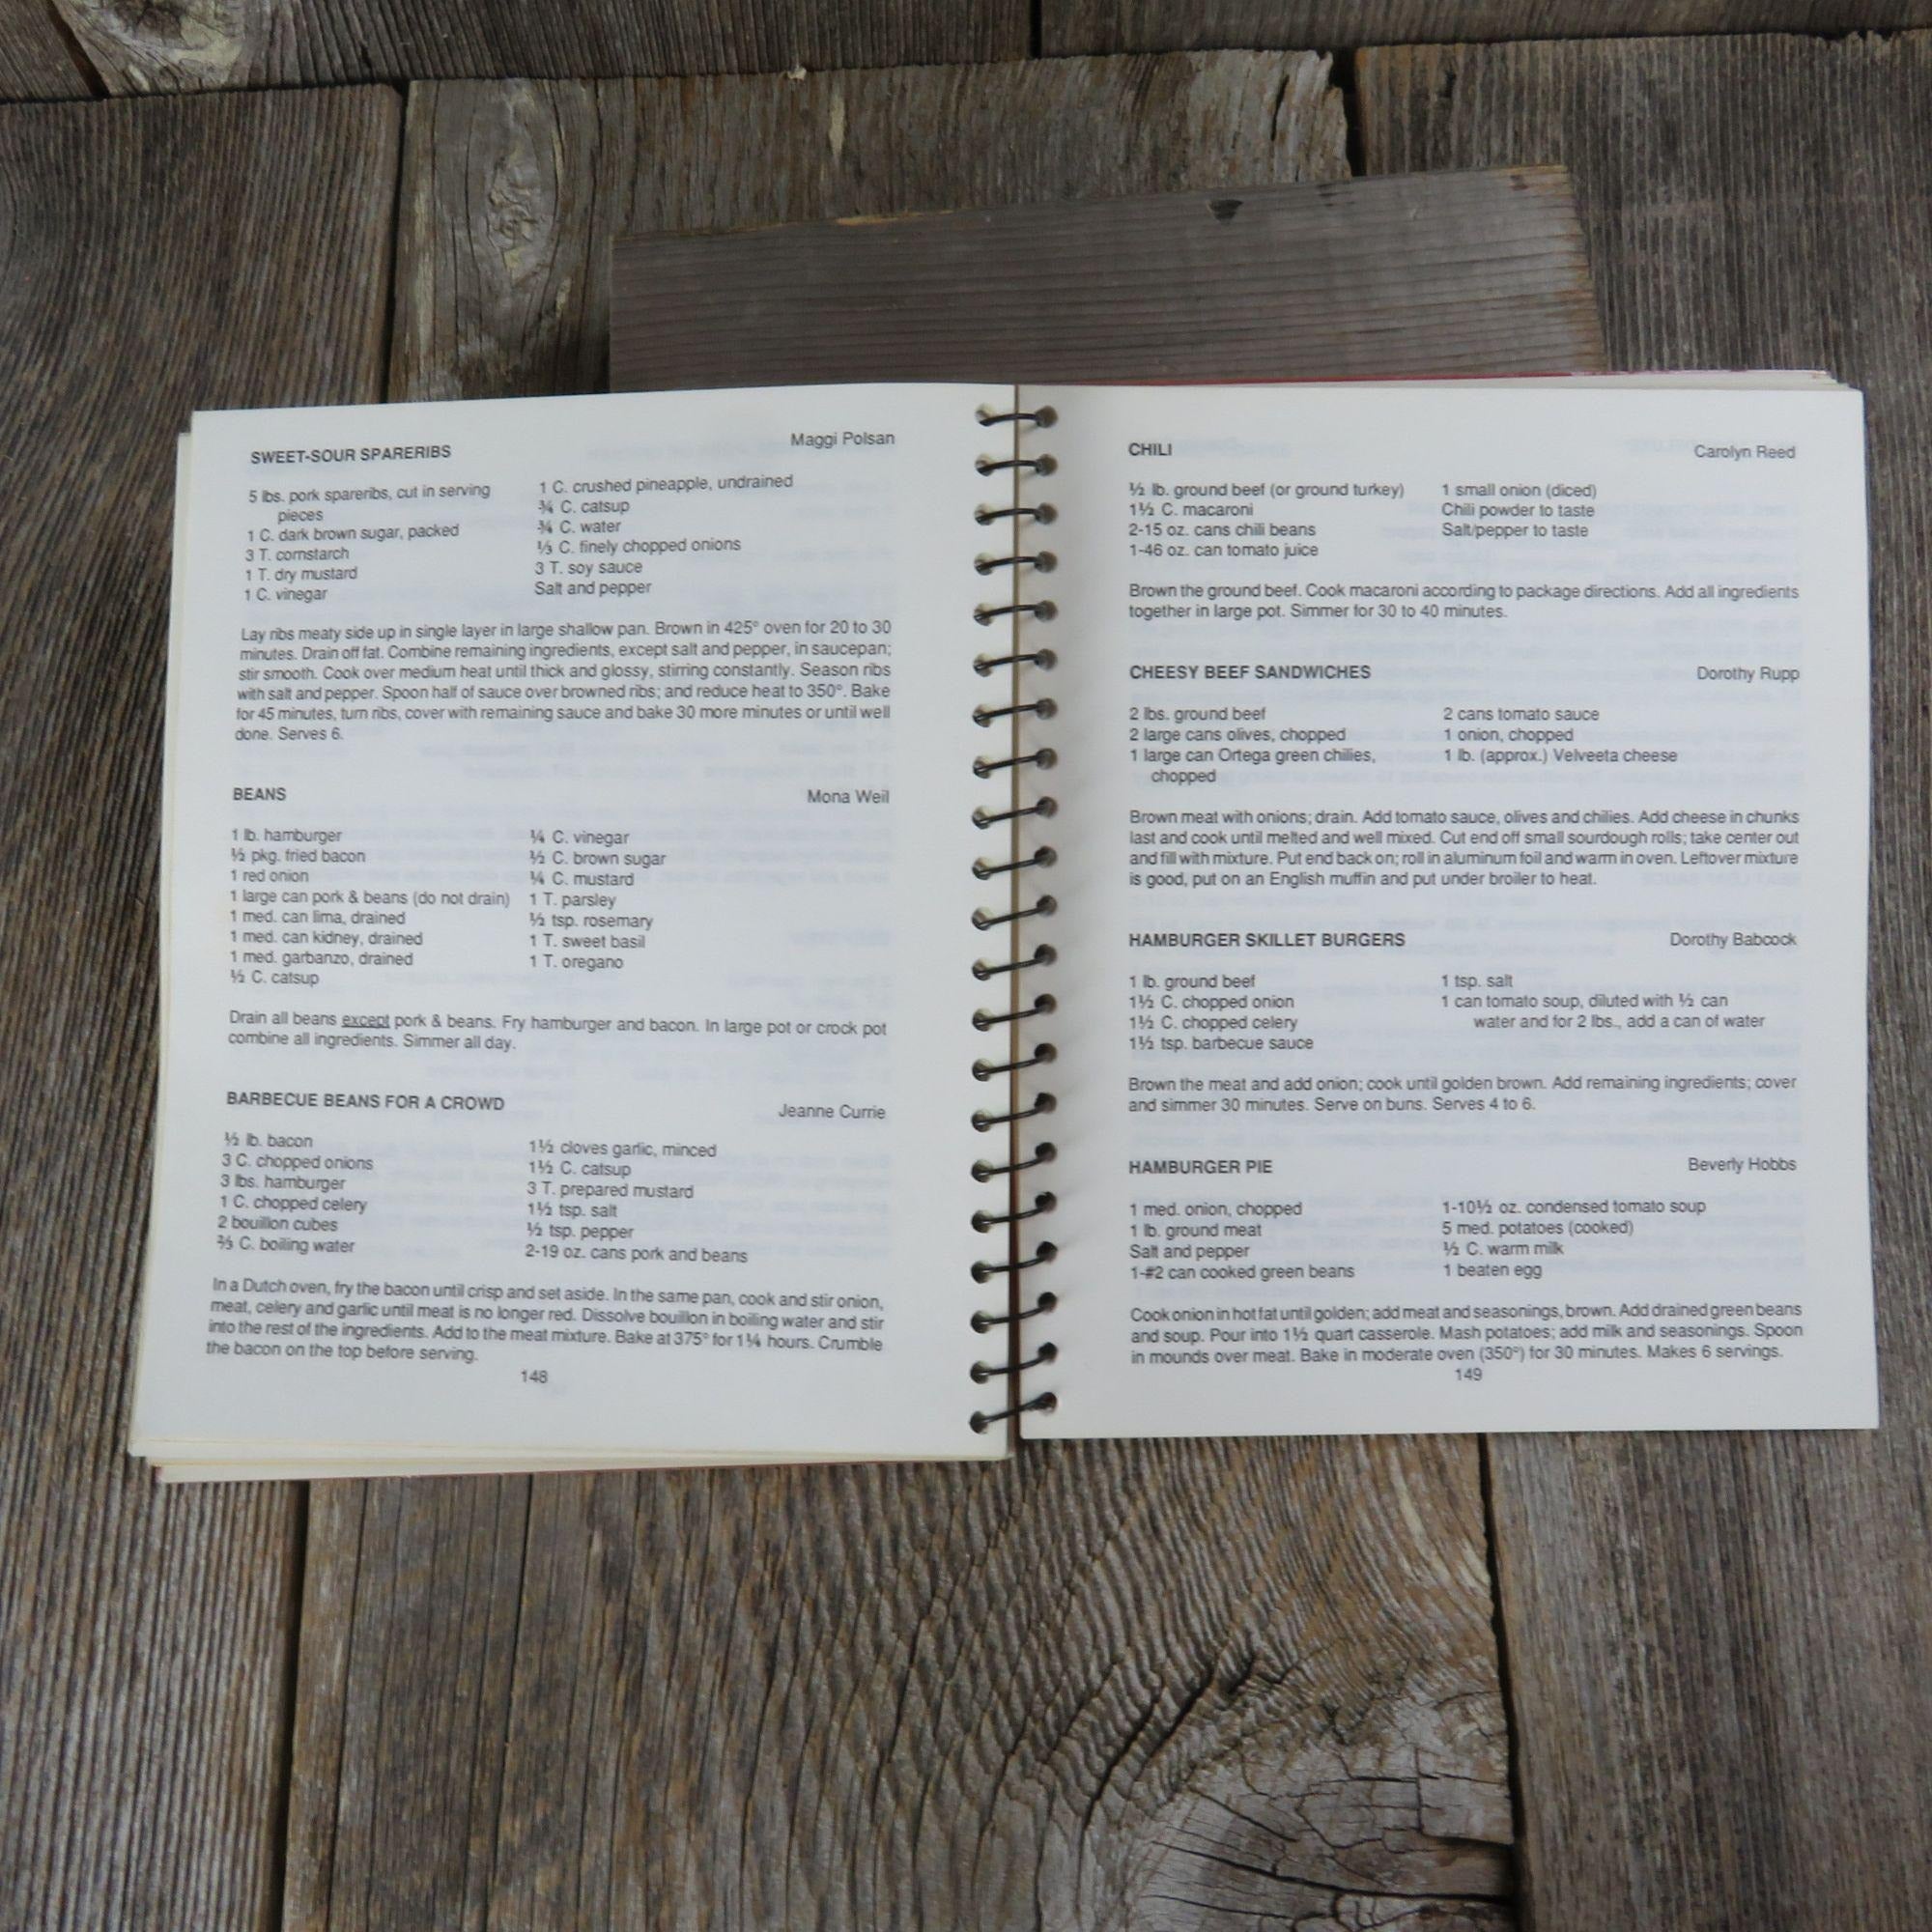 SWEET-SOUR SPARERIBS Maggi Polsan
5 lbs. pork spareribs, cut in serving
pieces
1 C. dark brown sugar, packed
3 T. cornstarch
1 T. dry mustard
1 C. vinegar
1 C. crushed pineapple, undrained
¾ C. catsup
¾ C. water
⅓ C. finely chopped onions
3 T. soy sauce
Salt and pepper
Lay ribs meaty side up in single layer in large shallow pan. Brown in 425° oven for 20 to 30
minutes. Drain off fat. Combine remaining ingredients, except salt and pepper, in saucepan;
stir smooth. Cook over medium heat until thick and glossy, stirring constantly. Season ribs
with salt and pepper. Spoon half of sauce over browned ribs; and reduce heat to 350°. Bake
for 45 minutes, turn ribs, cover with remaining sauce and bake 30 more minutes or until well
done. Serves 6.
BEANS Mona Weil
1 lb. hamburger
½ pkg. fried bacon
1 red onion
1 large can pork & beans (do not drain)
1 med. can lima, drained
1 med. can kidney, drained
1 med. garbanzo, drained
½ C. catsup
¼ C. vinegar
½ C. brown sugar
¼ C. mustard
1 T. parsley
½ tsp. rosemary
1 T. sweet basil
1 T. oregano
Drain all beans except pork & beans. Fry hamburger and bacon. In large pot or crock pot
combine all ingredients. Simmer all day.
BARBECUE BEANS FOR A CROWD Jeanne Currie
½ lb. bacon
3 C. chopped onions
3 lbs. hamburger
1 C. chopped celery
2 bouillon cubes
⅔ C. boiling water
1½ cloves garlic, minced
1½ C. catsup
3 T. prepared mustard
1½ tsp. salt
½ tsp. pepper
2-19 oz. cans pork and beans
In a Dutch oven, fry the bacon until crisp and set aside. In the same pan, cook and stir onion,
meat, celery and garlic until meat is no longer red. Dissolve bouillon in boiling water and stir
into the rest of the ingredients. Add to the meat mixture. Bake at 375° for 1¼ hours. Crumble
the bacon on the top before serving.
148
CHILI Carolyn Reed
½ lb. ground beef (or ground turkey)
1½ C. macaroni
2-15 oz. cans chili beans
1-46 oz. can tomato juice
1 small onion (diced)
Chili powder to taste
Salt/pepper to taste
Brown the ground beef. Cook macaroni according to package directions. Add all ingredients
together in large pot. Simmer for 30 to 40 minutes.
CHEESY BEEF SANDWICHES Dorothy Rupp
2 lbs. ground beef
2 large cans olives, chopped
1 large can Ortega green chilies,
chopped
2 cans tomato sauce
1 onion, chopped
1 lb. (approx.) Velveeta cheese
Brown meat with onions; drain. Add tomato sauce, olives and chilies. Add cheese in chunks
last and cook until melted and well mixed. Cut end off small sourdough rolls; take center out
and fill with mixture. Put end back on; roll in aluminum foil and warm in oven. Leftover mixture
is good, put on an English muffin and put under broiler to heat.
HAMBURGER SKILLET BURGERS Dorothy Babcock
1 lb. ground beef
1½ C. chopped onion
1½ C. chopped celery
1½ tsp. barbecue sauce
1 tsp. salt
1 can tomato soup, diluted with ½ can
water and for 2 lbs., add a can of water
Brown the meat and add onion; cook until golden brown. Add remaining ingredients; cover
and simmer 30 minutes. Serve on buns. Serves 4 to 6.
HAMBURGER PIE Beverly Hobbs
1 med. onion, chopped
1 lb. ground meat
Salt and pepper
1-#2 can cooked green beans
1-10½ oz. condensed tomato soup
5 med. potatoes (cooked)
½ C. warm milk
1 beaten egg
Cook onion in hot fat until golden; add meat and seasonings, brown. Add drained green beans
and soup. Pour into 1½ quart casserole. Mash potatoes; add milk and seasonings. Spoon
in mounds over meat. Bake in moderate oven (350°) for 30 minutes. Makes 6 servings.
149